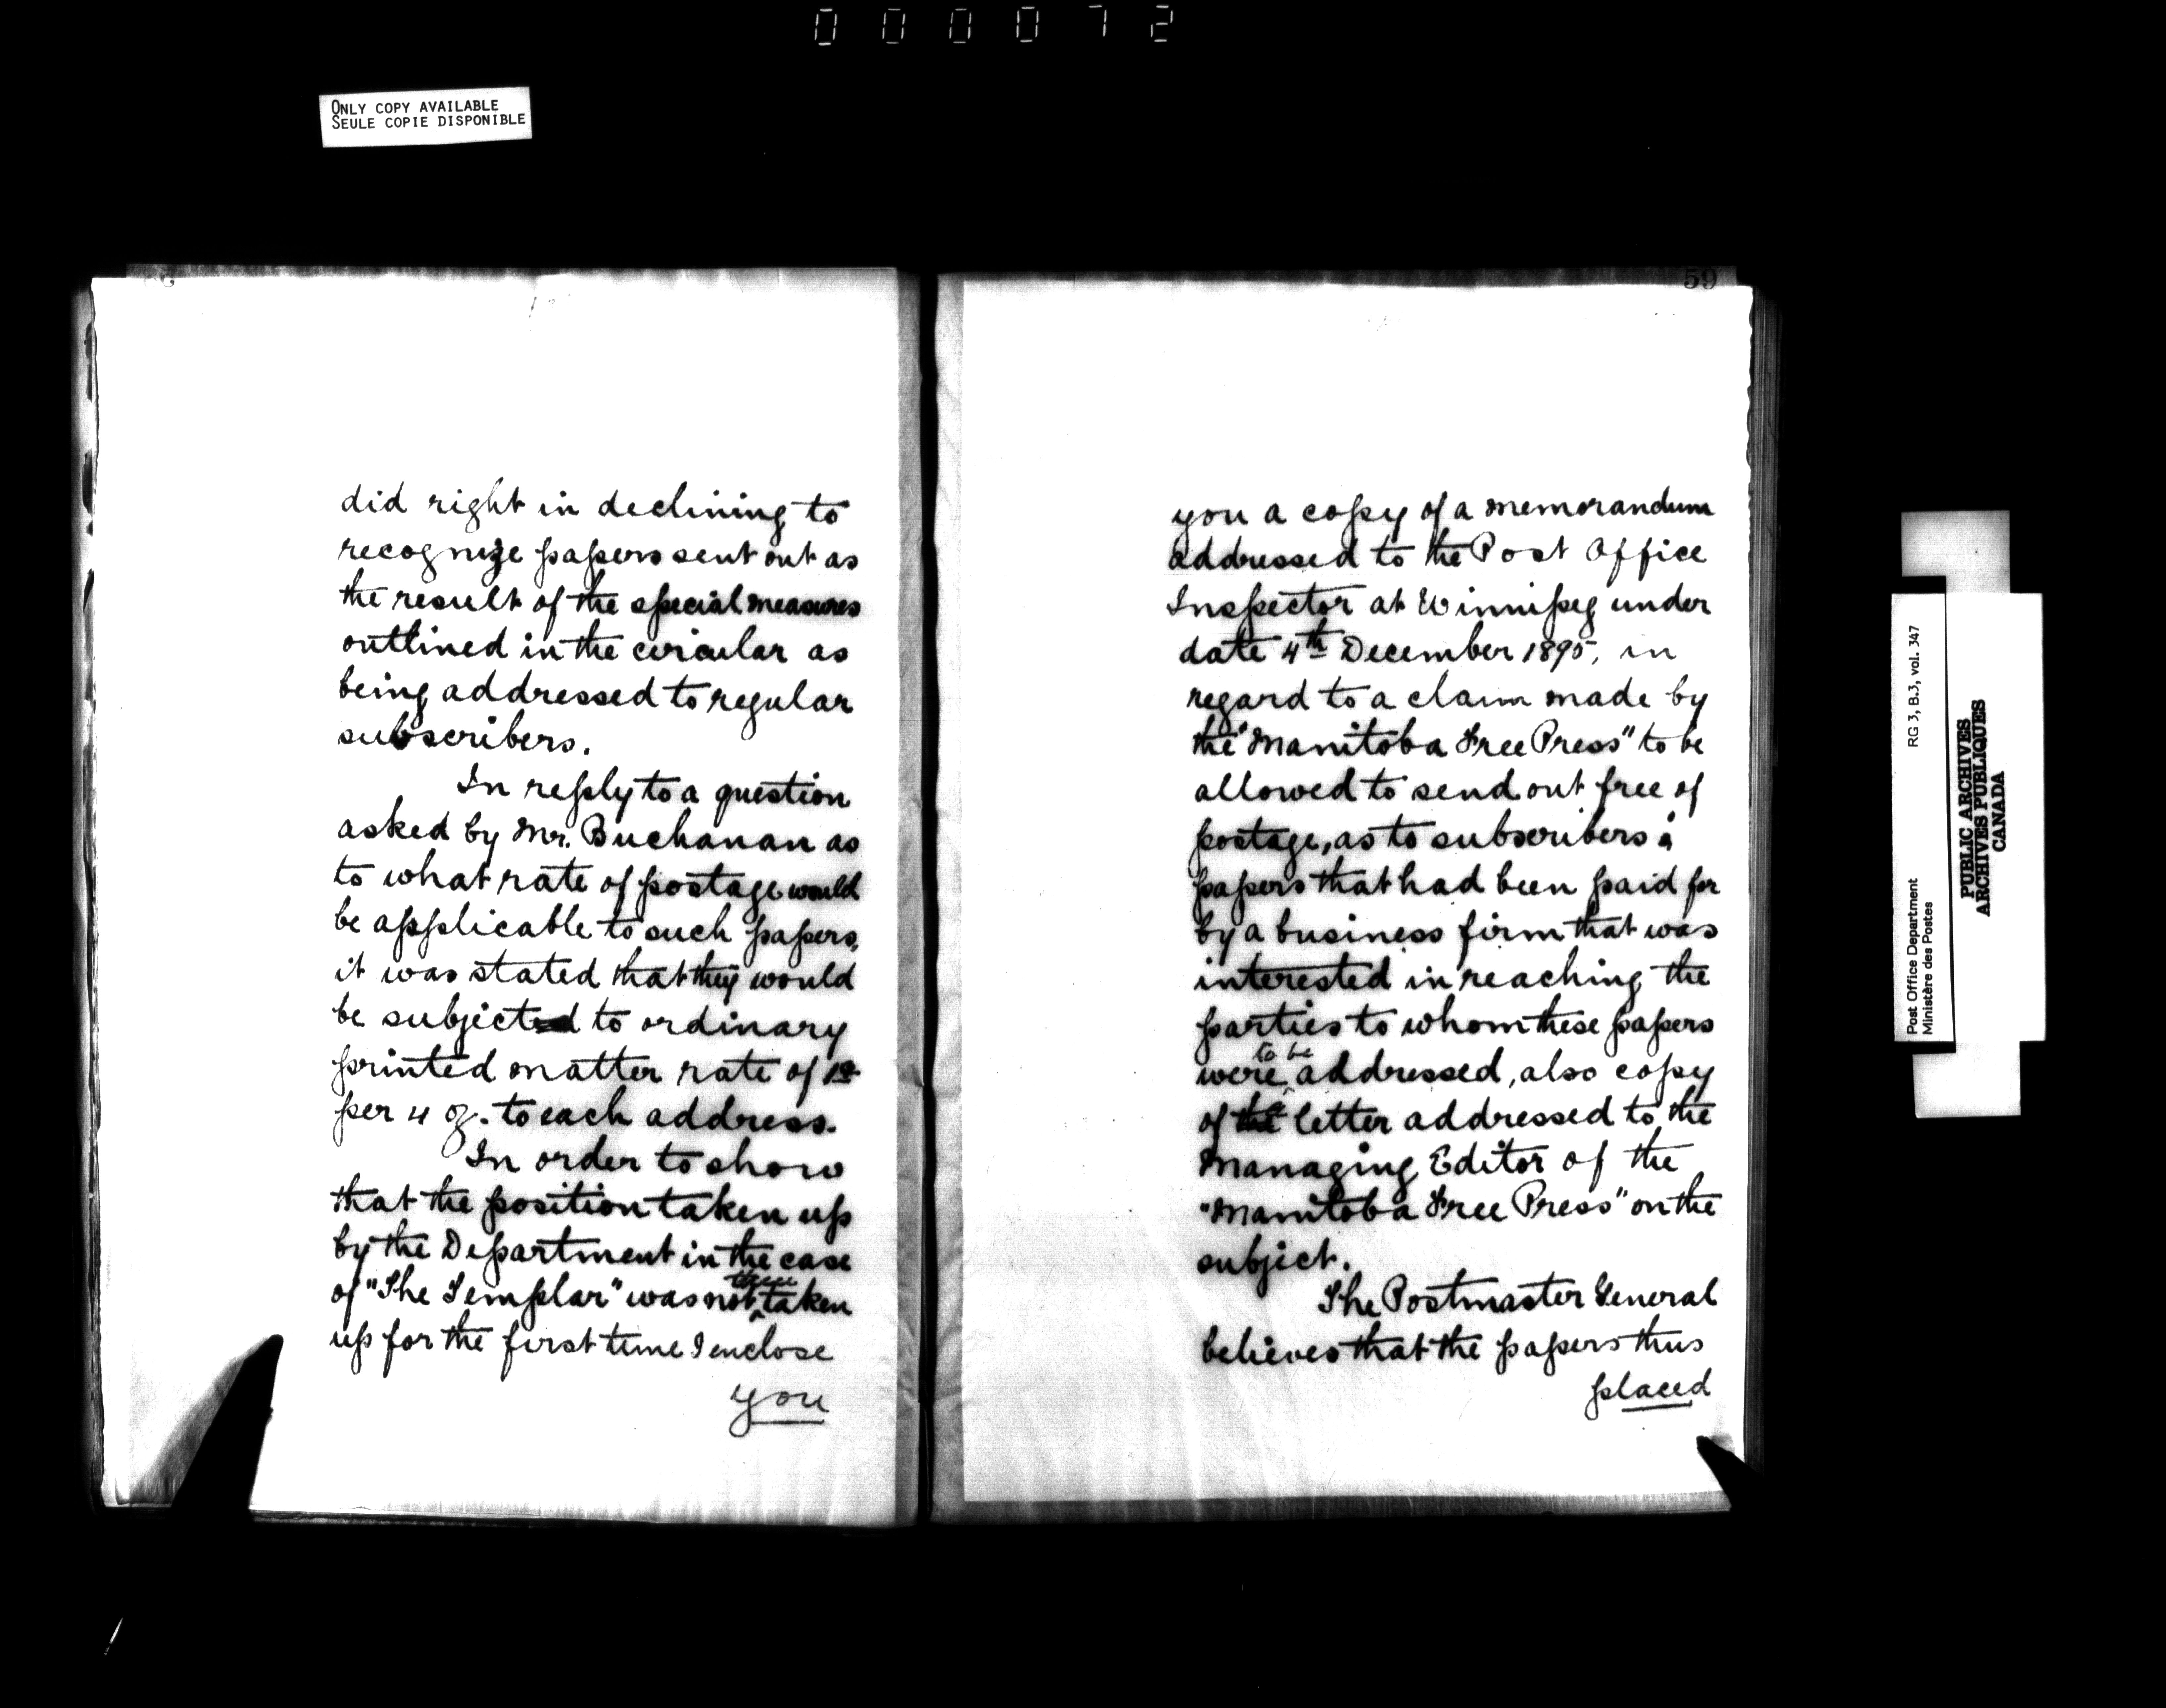 0 0 0 0 7 2
ONLY COPY AVAILABLE
SEULE COPIE DISPONIBLE
did right in declining to
recognize papers sent out as
the result of the special measures
outlined in the circular as
being addressed to regular
subscribers.
In reply to a question
asked by Mr. Buchanan as
to what rate of postage would
be applicable to such papers,
it was stated that they would
be subject to ordinary
printed matter rate of 1¢
per 4 oz. to each address.
In order to show
that the position taken up
by the Department in the case
of "The Templar" was not then taken
up for the first time I enclose
you
59
you a copy of a memorandum
addressed to the Post Office
Inspector at Winnipeg under
date 4th December 1895, in
regard to a claim made by
the "Manitoba Free Press" to be
allowed to send out free of
postage, as to subscribers,
papers that had been paid for
by a business firm that was
interested in reaching the
parties to whom these papers
were to be addressed, also copy
of a letter addressed to the
Managing Editor of the
"Manitoba Free Press" on the
subject.
The Postmaster General
believes that the papers thus
placed
Post Office Department
Ministère des Postes
RG 3, B.3, vol. 347
PUBLIC ARCHIVES
ARCHIVES PUBLIQUES
CANADA